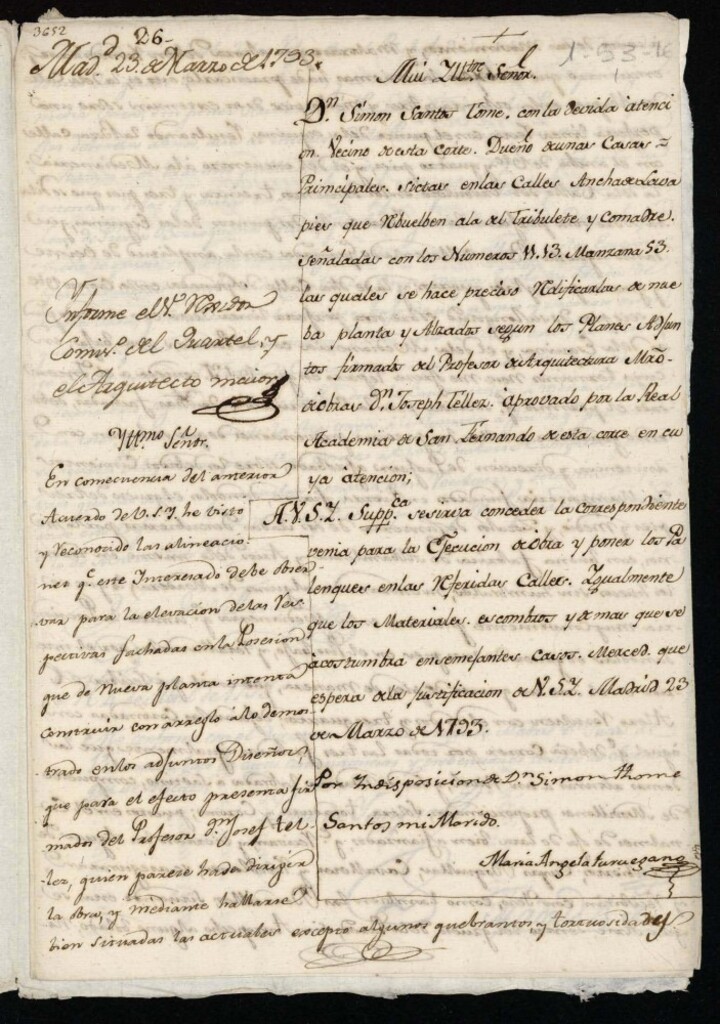 3652
26
Mad.d 23. de Marzo de 1793.
1-53-16
1
Mui Yltre. Señor.
Dn. Simon Santos Tome, con la devida atenci
on. Vecino de esta Corte. Dueño de unas Casas =
Principales. sictas en las Calles Ancha de Lava
pies que Rbuelben ala del Tribulete y Comadre.
señaladas con los Numeros 11.13. Manzana 53.
las quales se hace preciso Rdificarlas de nue
ba planta y Alzados segun los Planes Adjun
tos firmados del Profesor de Arquitectura Mro.
de obras Dn. Joseph Tellez. aprovado por la Real
Academia de San Fernando de esta corte en cu
ya atencion;
A.V.S.Y. Suppca. se sirva conceder la correspondiente
venia para la Ejecucion de obra y poner los Pa
lenques en las Rferidas Calles. Ygualmente
que los Materiales. escombros y demas que se
acostumbra en semejantes casos. Merced. que
espera de la justificacion de V.S.Y. Madrid 23
de Marzo de 1793.
Por Yndisposicion de Dn Simon thome
Santos mi Marido.
Maria Angela
Ynforme el Sr. Rexidor
Comiso. del Quartel, y
el Arquitecto maior
Yttmo. Señr.
En consecuencia del anterior
Acuerdo de V.S.Y. he visto
y Reconocido las alineacio
nes qe. este Interesado debe obser
var para la elevacion de las Res
pectivas fachadas en la Posesion
que de Nueva planta intenta
construir con arreglo a lo demos
trado en los adjuntos Diseños,
que para el efecto presenta fir
mados del Profesor Dn. Josef tel
lez, quien parece ha de dirigir
la obra, y mediante hallarse
bien situadas las actuales excepto algunos quebrantos y tortuosidady